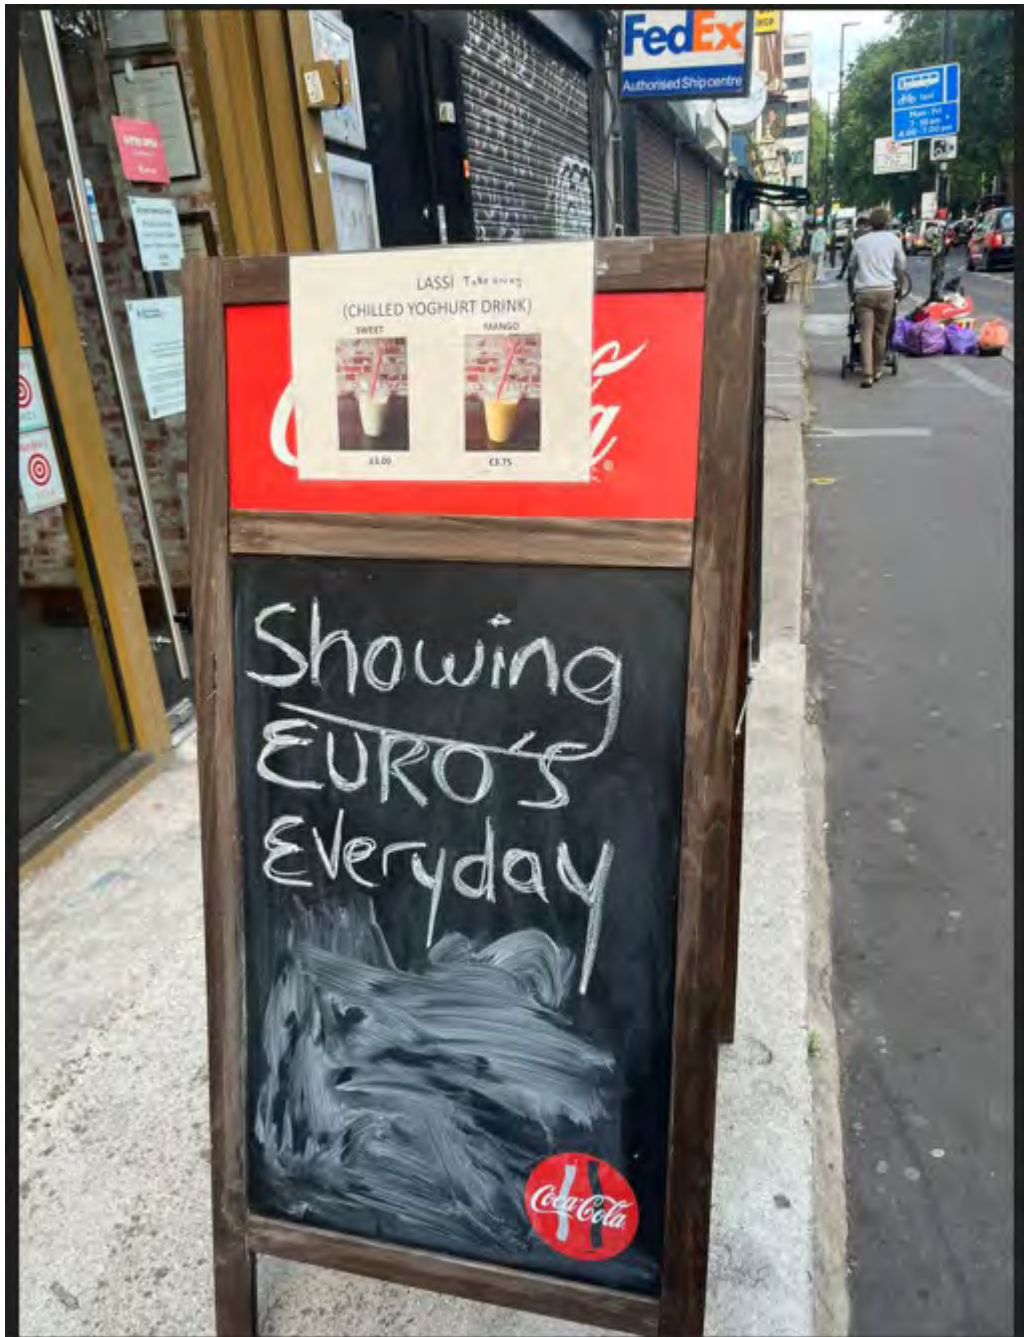 FedEx
Authorised Shipcentre
Mon - Fri
7 - 10 am
4.00 - 7.00 pm
LASSI Take away
(CHILLED YOGHURT DRINK)
SWEET MANGO
£3.00 £3.75
Showing
EURO'S
Everyday
Coca-Cola